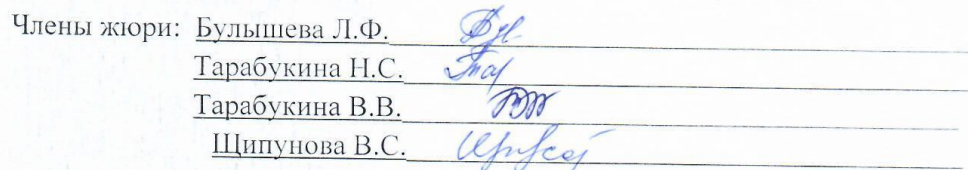 Члены жюри: Булышева Л.Ф.
Тарабукина Н.С.
Тарабукина В.В.
Щипунова В.С.